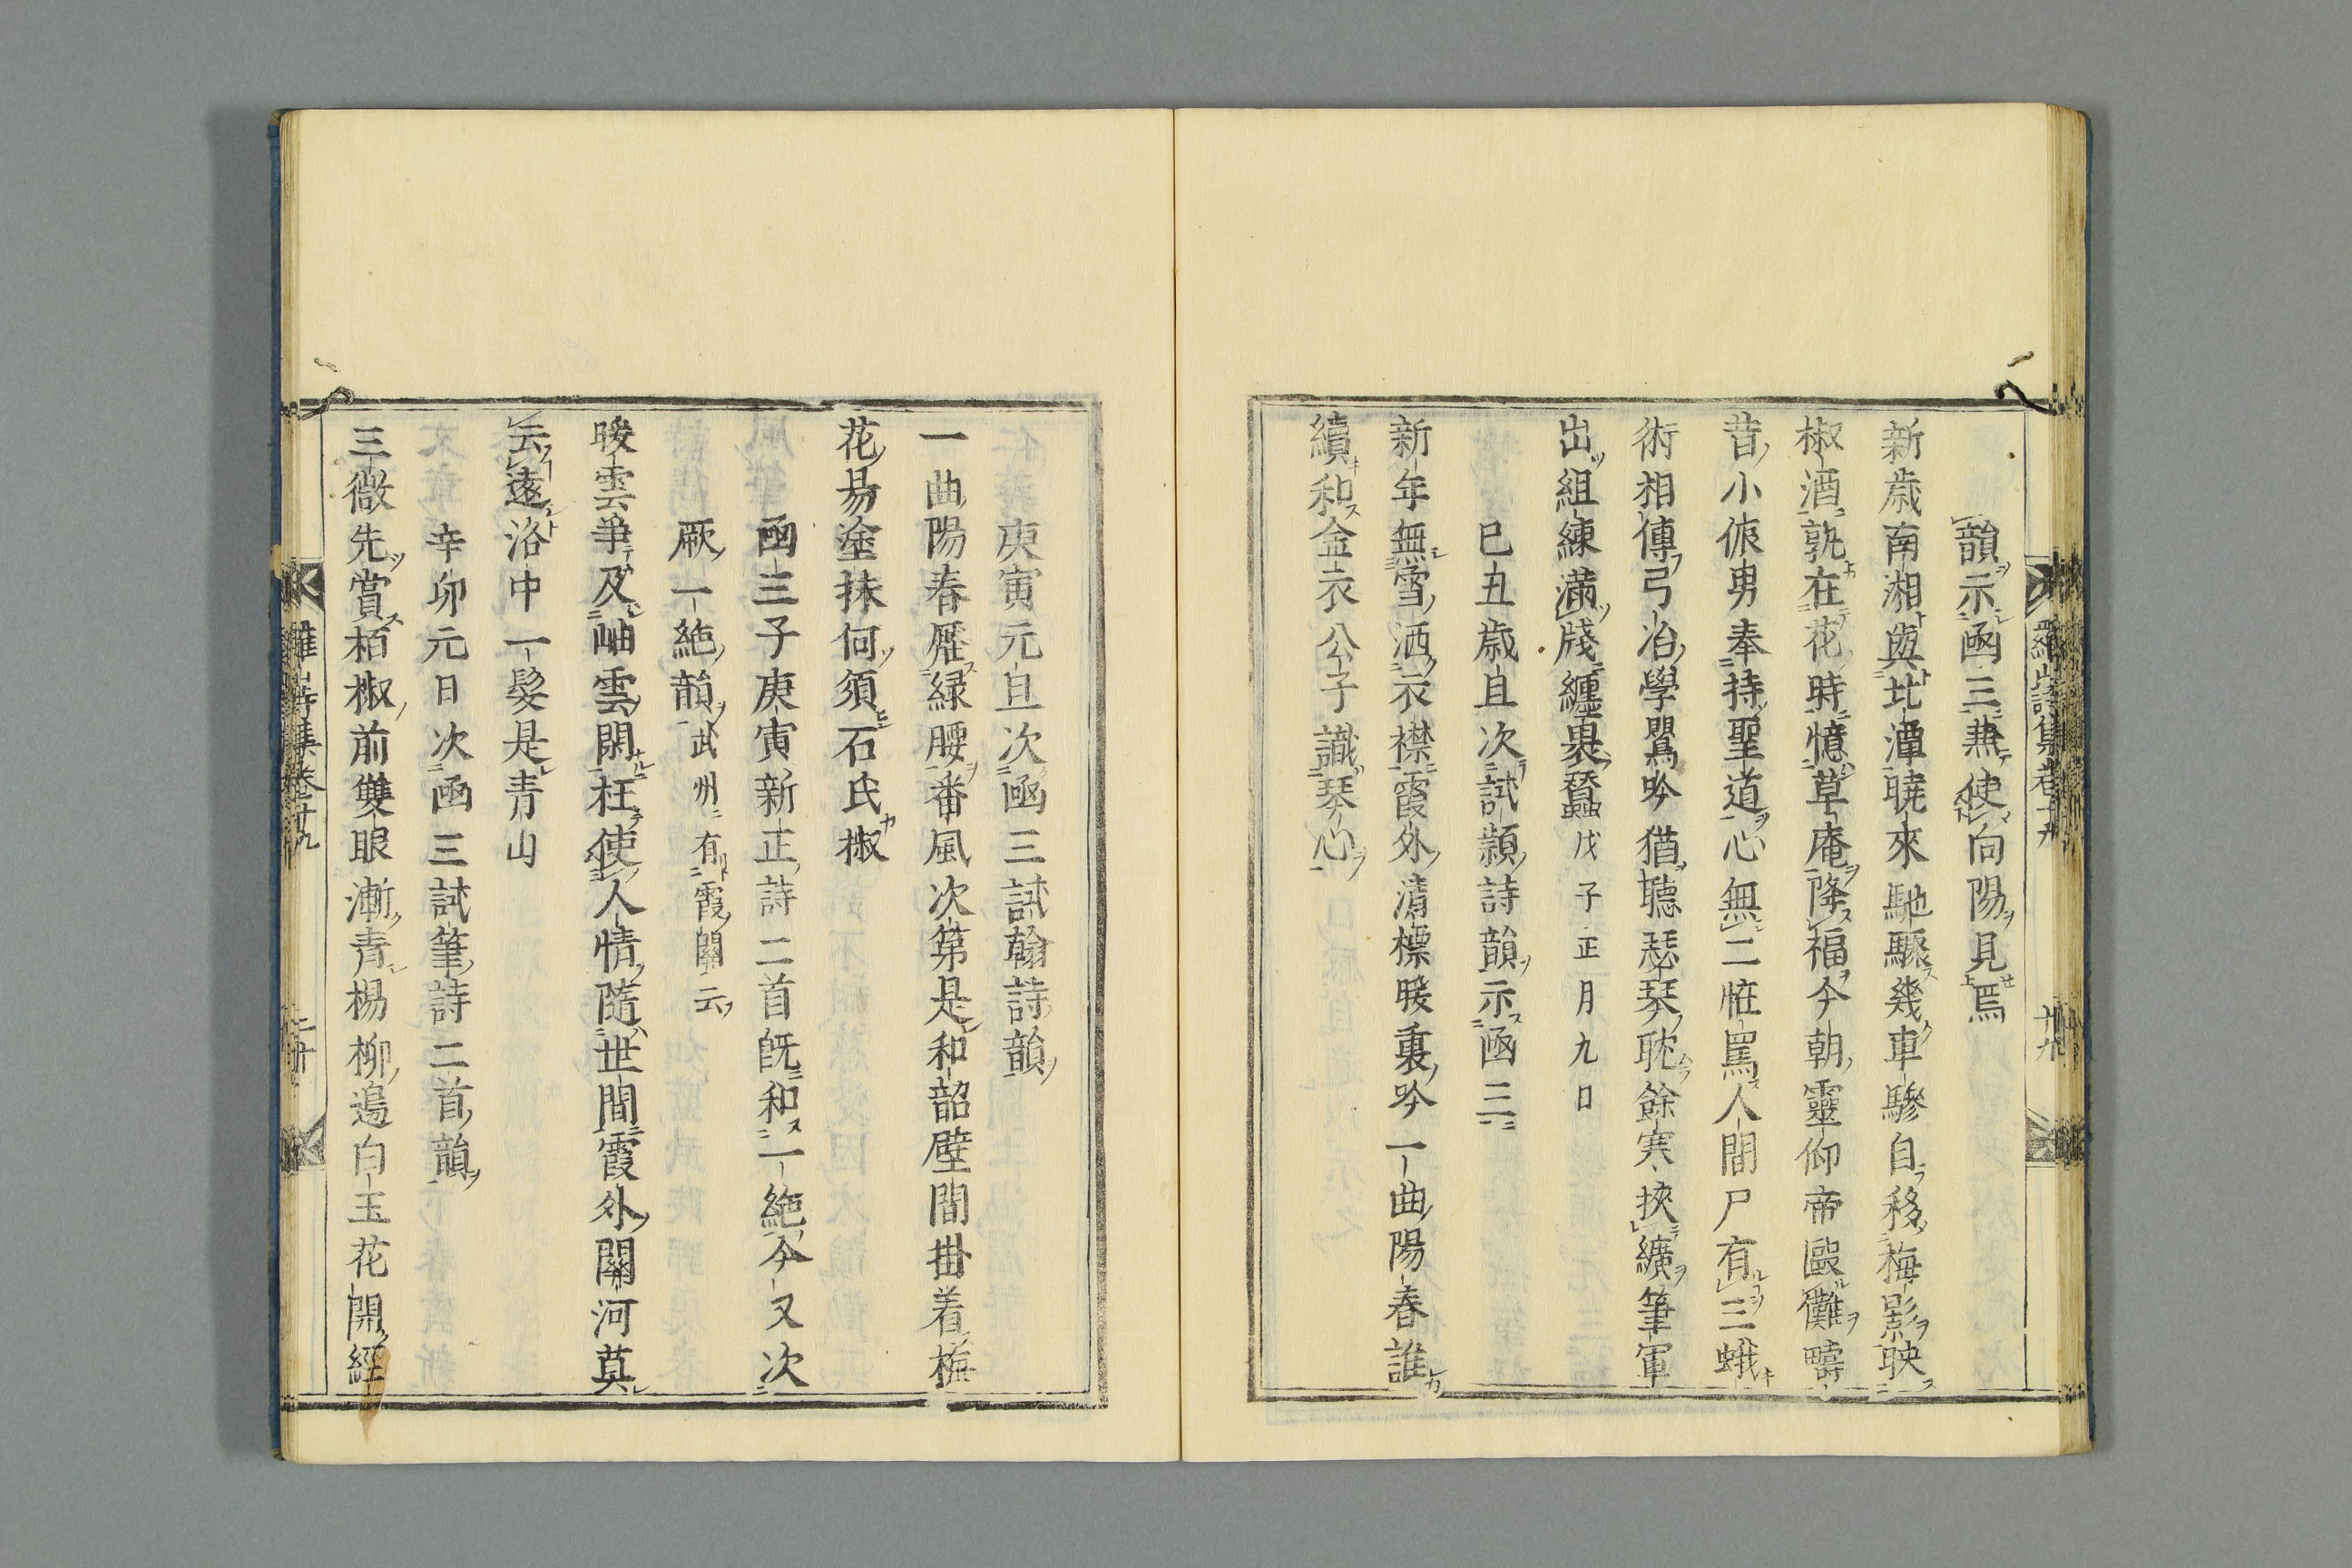 韻示函三兼使向陽見焉
新歳南湘與北潭曉來馳驟幾車驂自移梅影映
椒酒孰在花時憶草庵降福今朝靈仰帝毆儺疇
昔小侲男奉持聖道心無二恠罵人間尸有三蛾
術相傳弓冶學鸎吟猶聽瑟琴耽餘寒挾纊筆軍
出組練満牋纏裹蠶戊子正月九日
己丑歳旦次試顥詩韻示函三
新年無雪洒衣襟霞外清標暖裏吟一曲陽春誰
續和金衣公子識琴心
羅山詩集巻三十九
廿九
庚寅元旦次函三試翰詩韻
一曲陽春壓緑腰番風次第是和韶壁間掛着梅
花易塗抹何須石氏椒
函三子庚寅新正詩二首旣和一絶今又次
厥一絶韻武州有霞關云
暖雲爭及岫雲閑枉使人情隨世間霞外關河莫
云遠洛中一髮是青山
辛卯元日次函三試筆詩二首韻
三微先賞栢椒前雙眼漸青楊柳邉白玉花開經